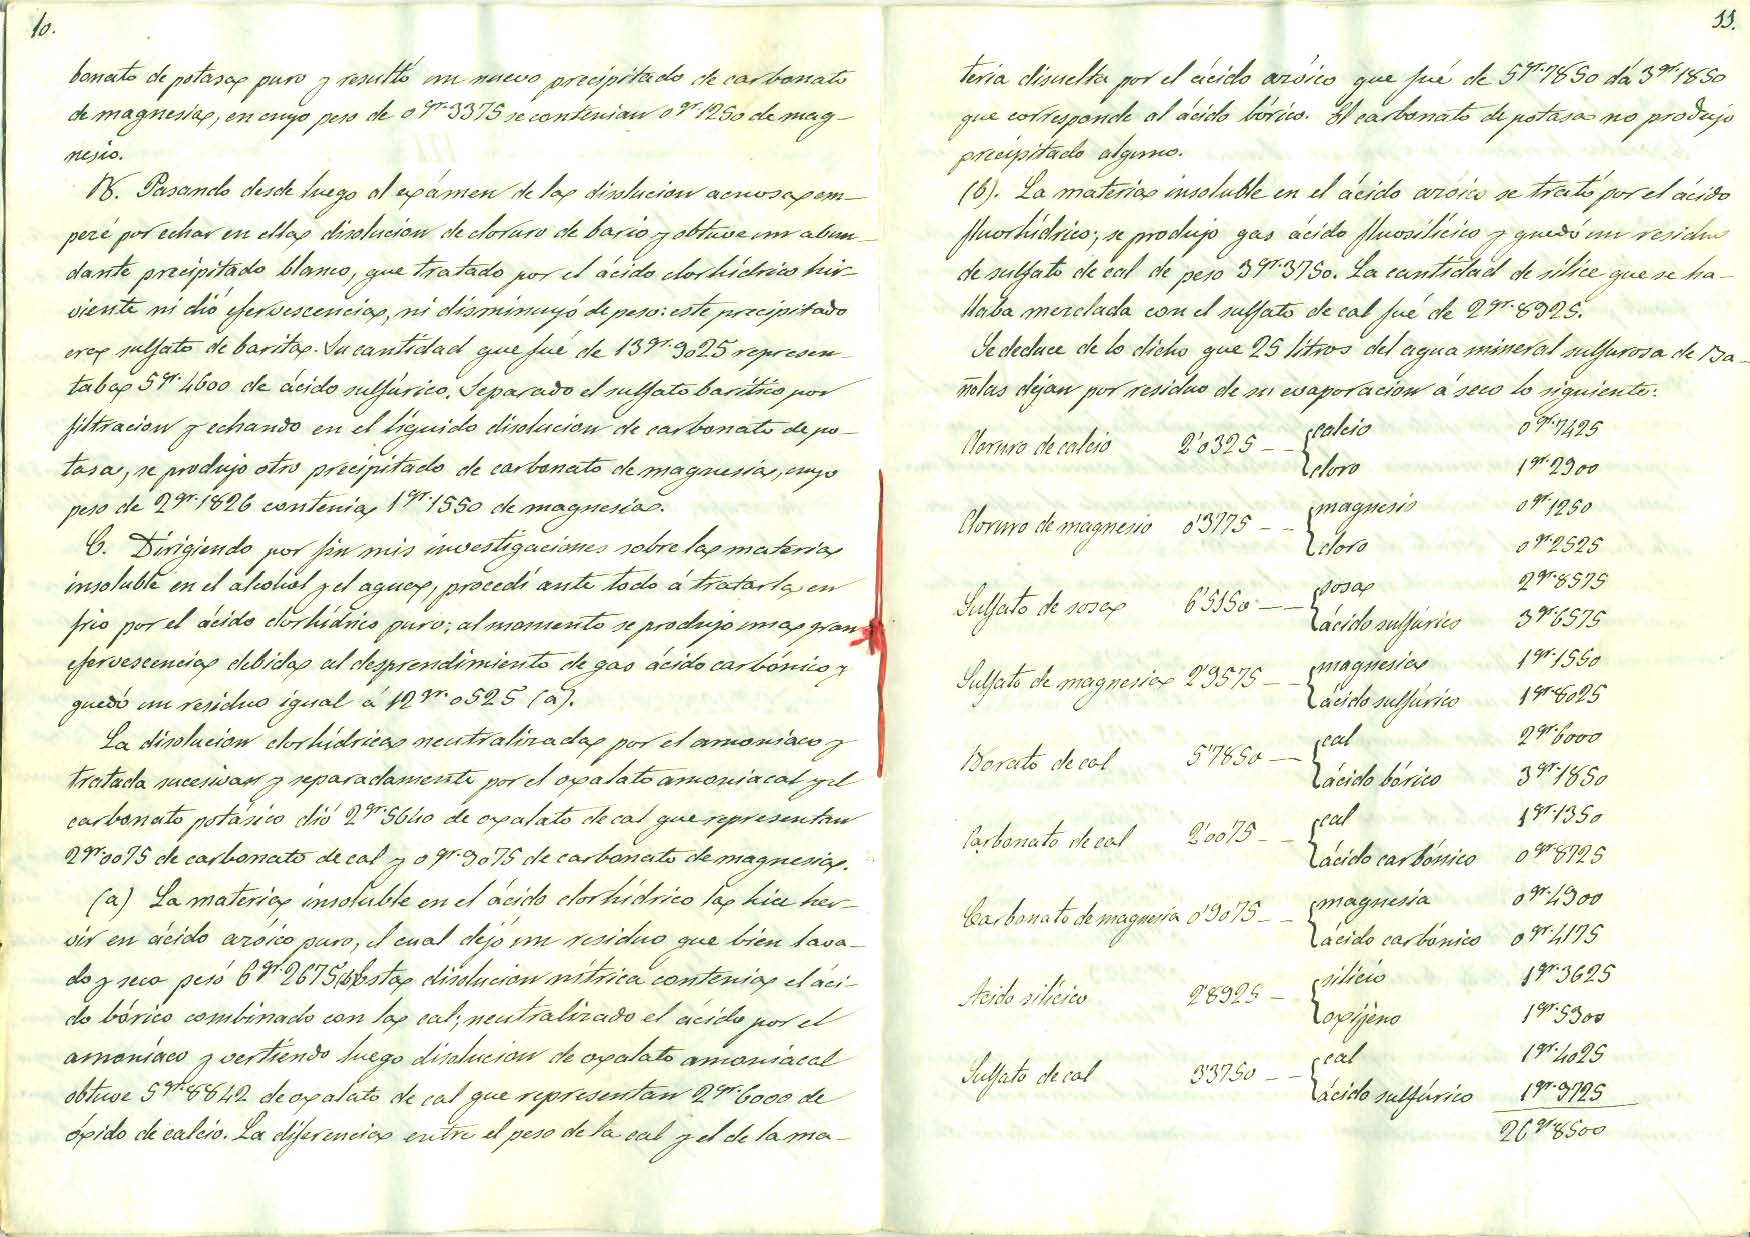 10.
bonato de potasa puro y resultó un nuevo precipitado de carbonato
de magnesia, en cuyo peso de 0gr.3375 se contenian 0gr.1250 de mag-
nesio.
B. Pasando desde luego al exámen de la disolucion acuosa em-
pezé por echar en ella disolucion de cloruro de bario y obtuve un abun-
dante precipitado blanco, que tratado por el ácido clorhídrico hir-
viente ni dió efervescencia, ni disminuyó de peso: este precipitado
era sulfato de barita. Su cantidad que fué de 13gr.9025 represen-
taba 5gr.4600 de ácido sulfúrico. Separado el sulfato barítico por
filtracion y echando en el líquido disolucion de carbonato de po-
tasa, se produjo otro precipitado de carbonato de magnesia, cuyo
peso de 2gr.1826 contenia 1gr.1550 de magnesia.
C. Dirigiendo por fin mis investigaciones sobre la materia
insoluble en el alcohol y el agua, procedí ante todo á tratarla en
frio por el ácido clorhídrico puro; al momento se produjo una gran
efervescencia debida al desprendimiento de gas ácido carbónico y
quedó un residuo igual á 12gr.0525 (a).
La disolucion clorhídrica neutralizada por el amoníaco y
tratada sucesivam y separadamente por el oxalato amoniacal y el
carbonato potásico dió 2gr.5640 de oxalato de cal que representan
2gr.0075 de carbonato de cal y 0gr.9075 de carbonato de magnesia.
(a) La materia insoluble en el ácido clorhídrico la hice her-
vir en ácido azóico puro, el cual dejó un residuo que bien lava-
do y seco pesó 6gr.2675(b) Esta disolucion nítrica contenia el áci-
do bórico combinado con la cal; neutralizado el ácido por el
amoníaco y vertiendo luego disolucion de oxalato amoniacal
obtuve 5gr.8842 de oxalato de cal que representan 2gr.6000 de
óxido de calcio. La diferencia entre el peso de la cal y el de la ma-
11.
teria disuelta por el ácido azóico que fué de 5gr.7850 dá 3gr.1850
que corresponde al ácido bórico. El carbonato de potasa no produjo
precipitado alguno.
(b). La materia insoluble en el ácido azóico se trató por el ácido
fluorhídrico; se produjo gas ácido fluosilícico y quedó un residuo
de sulfato de cal de peso 3gr.3750. La cantidad de sílice que se ha-
llaba mezclada con el sulfato de cal fué de 2gr.8925.
Se deduce de lo dicho que 25 litros del agua mineral sulfurosa de Ba-
ñolas dejan por residuo de su evaporacion á seco lo siguiente:
Cloruro de calcio 2'0325 -- { calcio 0gr.7425
cloro 1gr.2900
Cloruro de magnesio 0'3775 -- { magnesio 0gr.1250
cloro 0gr.2525
Sulfato de sosa 6'5150 -- { sosa 2gr.8575
ácido sulfúrico 3gr.6575
Sulfato de magnesia 2'9575 -- { magnesia 1gr.1550
ácido sulfúrico 1gr.8025
Borato de cal 5'7850 -- { cal 2gr.6000
ácido bórico 3gr.1850
Carbonato de cal 2'0075 -- { cal 1gr.1350
ácido carbónico 0gr.8725
Carbonato de magnesia 0'9075 -- { magnesia 0gr.4900
ácido carbónico 0gr.4175
Acido silícico 2'8925 - { silicio 1gr.3625
oxíjeno 1gr.5300
Sulfato de cal 3'3750 -- { cal 1gr.4025
ácido sulfúrico 1gr.9725
26gr.8500